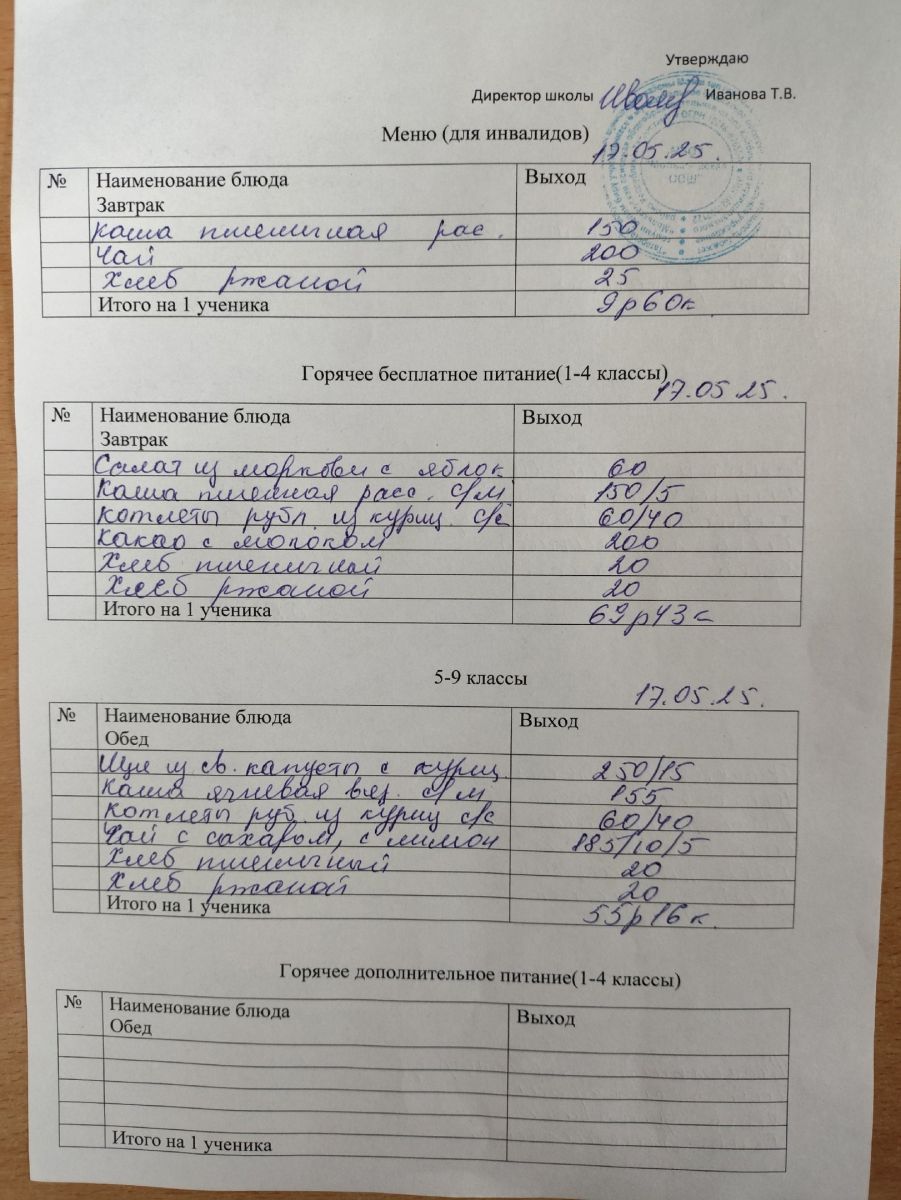 Утверждаю
Директор школы Иванова Т.В.
Меню (для инвалидов)
17.05.25.
№ Наименование блюда Выход
Завтрак
Каша пшеничная рас. 150
Чай 200
Хлеб ржаной 25
Итого на 1 ученика 9р60к
Горячее бесплатное питание(1-4 классы)
17.05.25.
№ Наименование блюда Выход
Завтрак
Салат из моркови с яблок 60
Каша пшенная расс. с/м 150/5
Котлеты рубл. из куриц. с/с 60/40
Какао с молоком 200
Хлеб пшеничный 20
Хлеб ржаной 20
Итого на 1 ученика 69р43к
5-9 классы
17.05.25.
№ Наименование блюда Выход
Обед
Щи из св. капусты с куриц. 250/15
Каша ячневая вяз. с/м 155
Котлеты руб. из куриц с/с 60/40
Чай с сахаром, с лимон 185/10/5
Хлеб пшеничный 20
Хлеб ржаной 20
Итого на 1 ученика 55р16к.
Горячее дополнительное питание(1-4 классы)
№ Наименование блюда Выход
Обед
Итого на 1 ученика